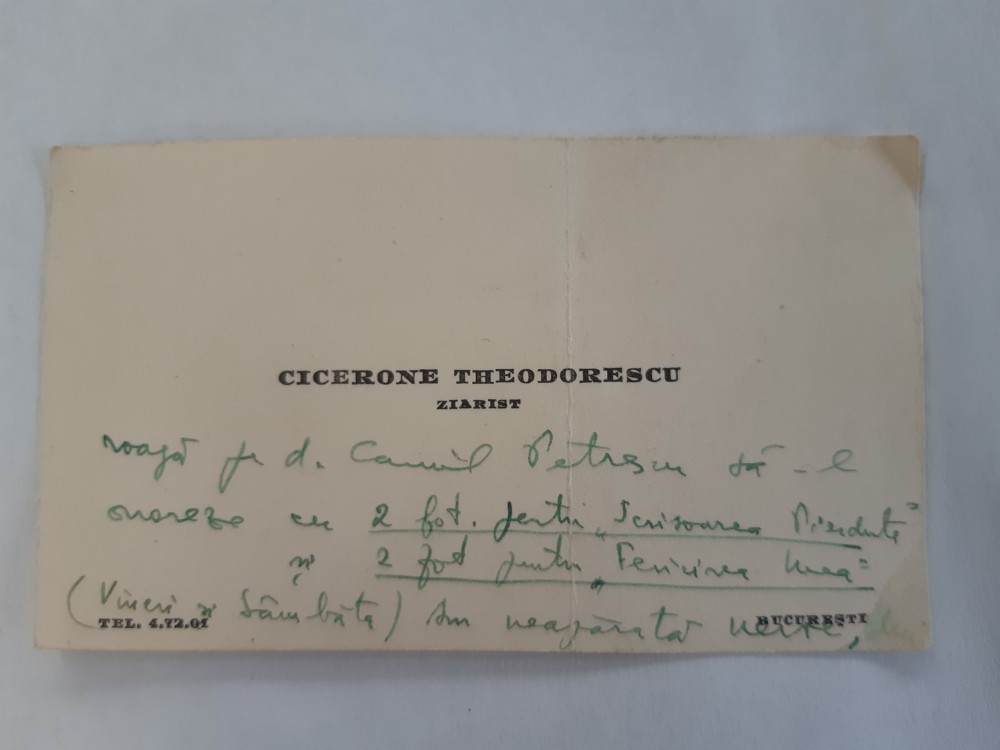 CICERONE THEODORESCU
ZIARIST
roagă pe d. Camil Petrescu să-l
onoreze cu 2 fot. pentru „Scrisoarea Pierdută"
și 2 fot pentru „Fericirea mea"
(Vineri și Sâmbătă) am neapărată nevoie,
TEL. 4.72.01 BUCUREȘTI